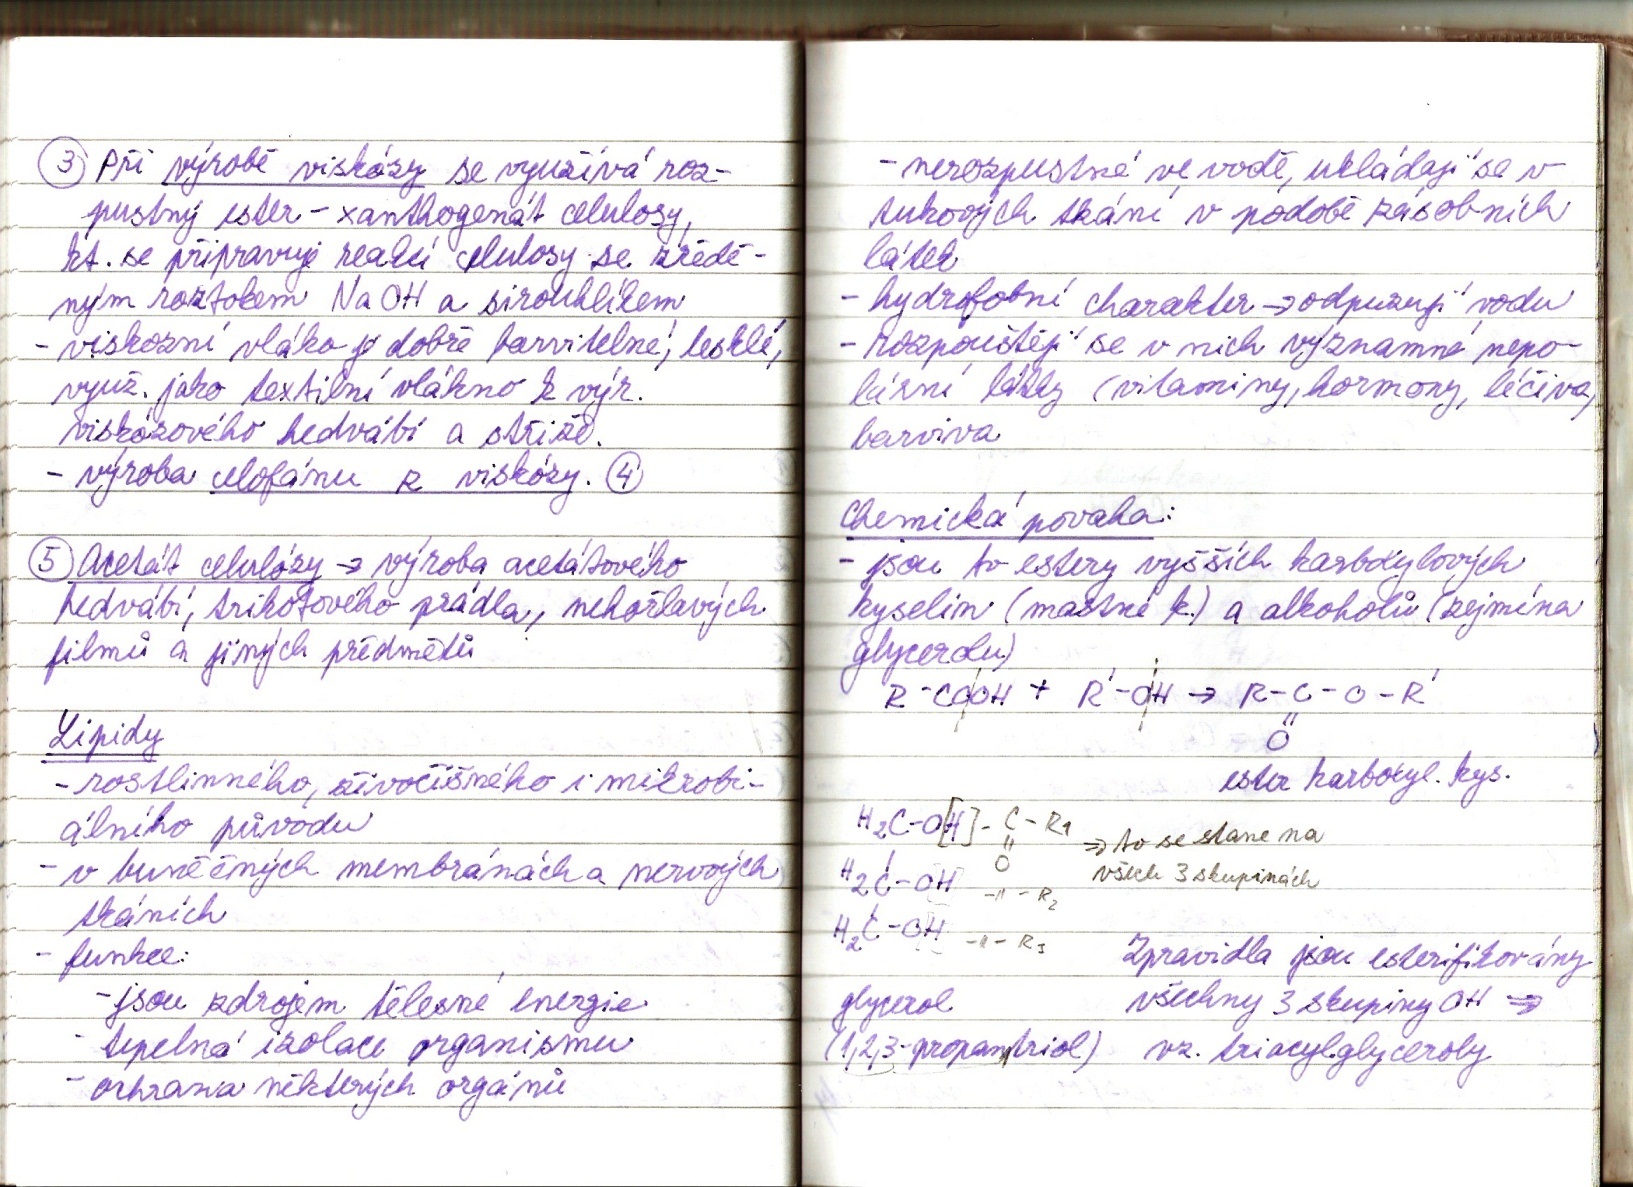 ③ Při výrobě viskózy se využívá roz-
pustný ester - xanthogenát celulosy,
kt. se připravuje reakcí celulosy se zředě-
ným roztokem NaOH a sirouhlíkem
- viskozní vláko je dobře barvitelné, lesklé,
využ. jako textilní vlákno k výr.
viskózového hedvábí a střiže.
- výroba celofánu z viskózy. ④
⑤ Acetát celulózy → výroba acetátového
hedvábí, trikotového prádla, nehořlavých
filmů a jiných předmětů
Lipidy
- rostlinného, živočišného i mikrobi-
álního původu
- v buněčných membránách a nervových
tkáních
- funkce:
- jsou zdrojem tělesné energie
- tepelná izolace organismu
- ochrana některých orgánů
- nerozpustné ve vodě, ukládají se v
tukových tkání v podobě zásobních
látek
- hydrofobní charakter → odpuzují vodu
- rozpouštějí se v nich významné nepo-
lární látky (vitaminy, hormony, léčiva,
barviva
Chemická povaha:
- jsou to estery vyšších karboxylových
kyselin (mastné k.) a alkoholů (zejména
glycerolu)
R-COOH + R'-OH → R-C-O-R'
=
O
ester karboxyl. kys.
H₂C-O[H]-C-R1 ⇒ to se stane na
= všech 3 skupinách
O
H₂C-OH -"- R₂
H₂C-OH -"- R₃
Zpravidla jsou esterifikovány
glycerol všechny 3 skupiny OH ⇒
(1,2,3-propantriol) vz. triacylglyceroly